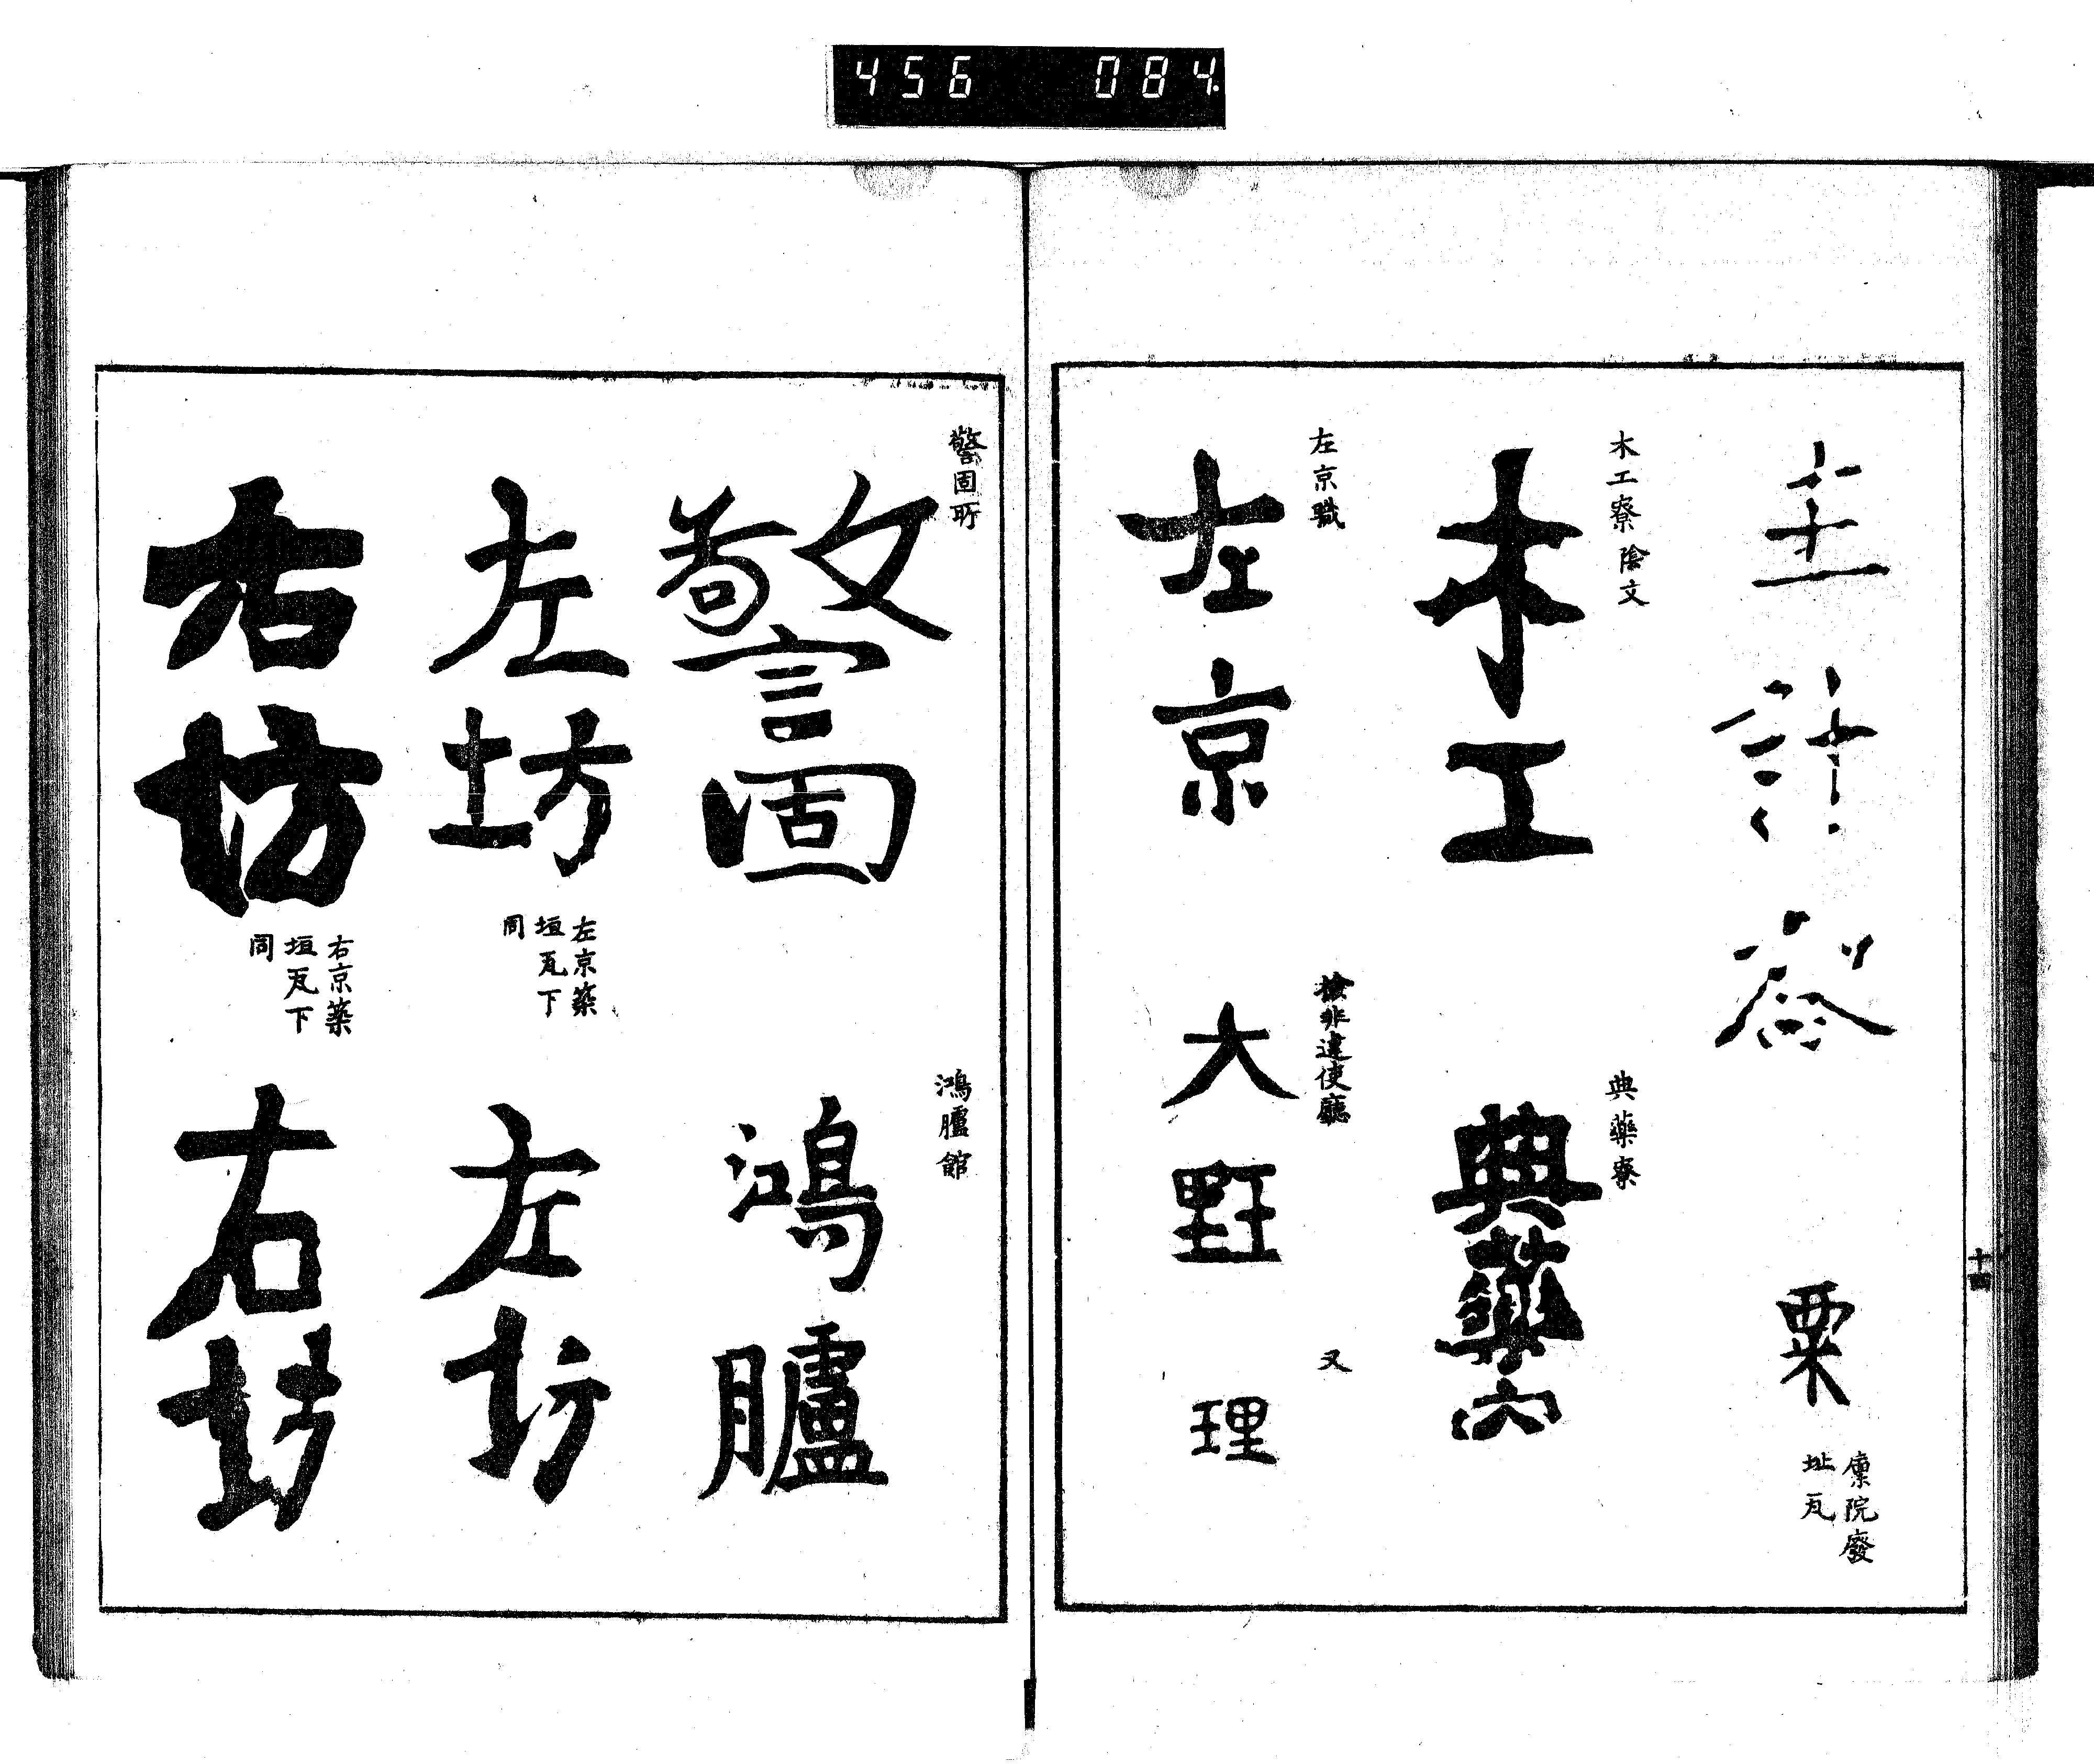 456 084
主計寮
粟
廩院廢
址瓦
木工寮陰文
木工
典藥寮
典藥寮
左京職
左京
檢非違使廳
大理
又
理
十四
警固所
警固
鴻臚館
鴻臚
左坊
左京築
垣瓦下
同
左坊
右坊
右京築
垣瓦下
同
右坊